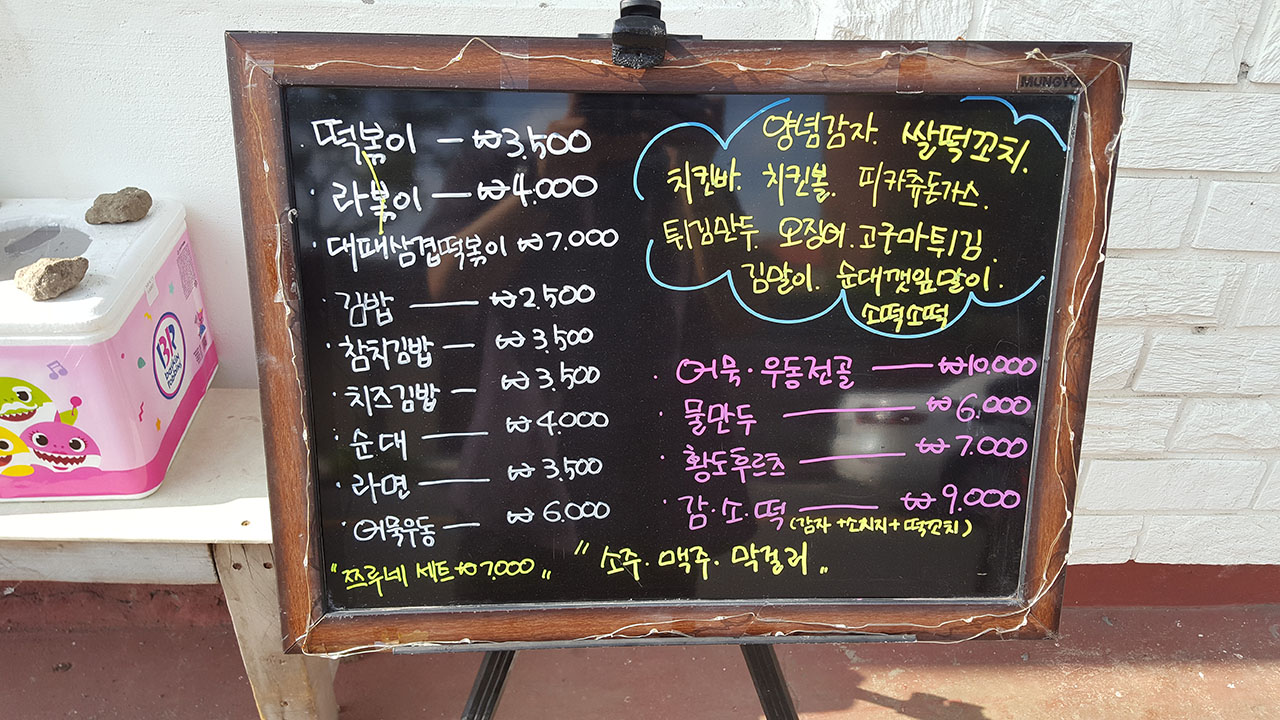 MUNGYO
떡볶이 - ₩3,500
· 라볶이 — ₩4.000
· 대패삼겹떡볶이 ₩7.000
· 김밥 — ₩2.500
· 참치김밥 — ₩3.500
· 치즈김밥 — ₩3.500
· 순대 — ₩4.000
· 라면 — ₩3,500
· 어묵우동 — ₩6.000
"쯔루네 세트 ₩7.000"
양념감자. 쌀떡꼬치.
치킨바. 치킨볼. 피카츄돈가스.
튀김만두 오징어.고구마튀김.
김말이. 순대깻잎말이.
소떡소떡
· 어묵·우동전골 — ₩10.000
· 물만두 — ₩6.000
· 황도후르츠 — ₩7.000
· 감·소·떡 — ₩9.000
(감자+소시지+떡꼬치)
"소주. 맥주. 막걸리"
BR
baskin
Robbins